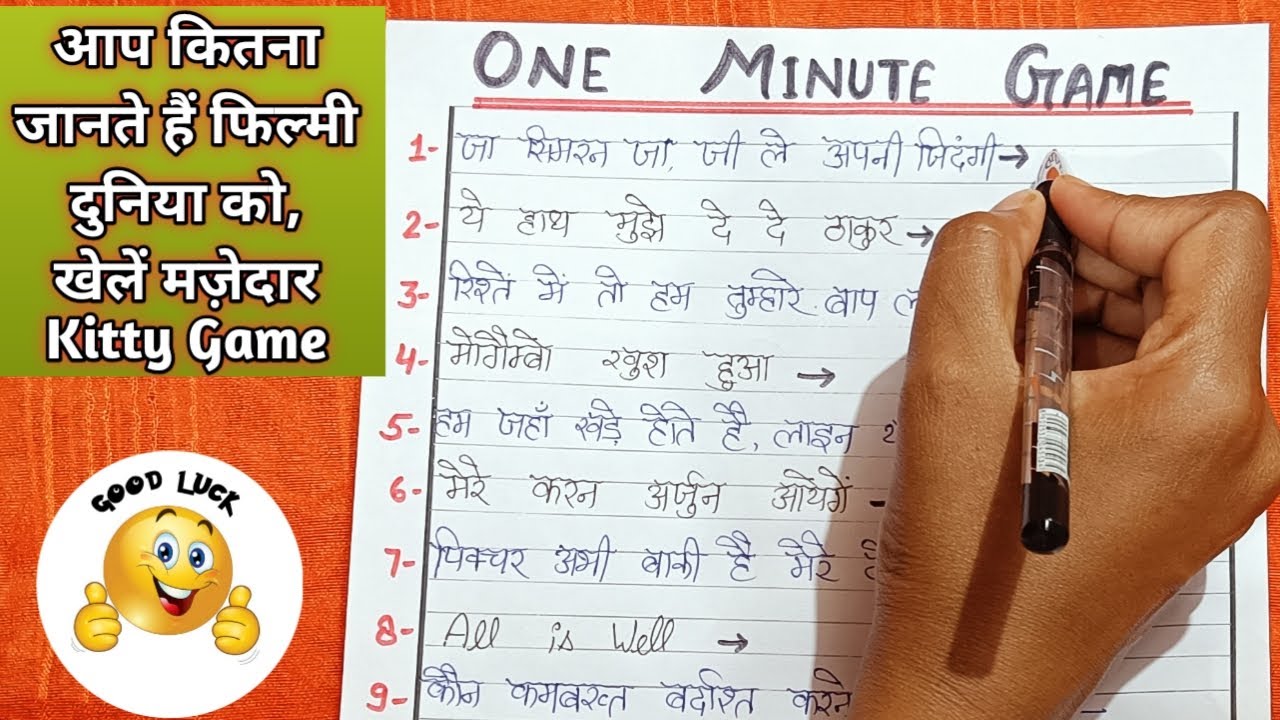 आप कितना
जानते हैं फिल्मी
दुनिया को,
खेलें मज़ेदार
Kitty Game
GOOD LUCK
ONE MINUTE GAME
1- जा सिमरन जा, जी ले अपनी जिदंगी→
2- ये हाथ मुझे दे दे ठाकुर→
3- रिश्तें में तो हम तुम्हारे बाप
4- मोगैम्बो खुश हुआ →
5- हम जहाँ खड़े होते है, लाइन
6- मेरे करन अर्जुन आयेगें -
7- पिक्चर अभी बाकी है मेरे
8- All is Well →
9- कौन कमबख्त बर्दाश्त करने